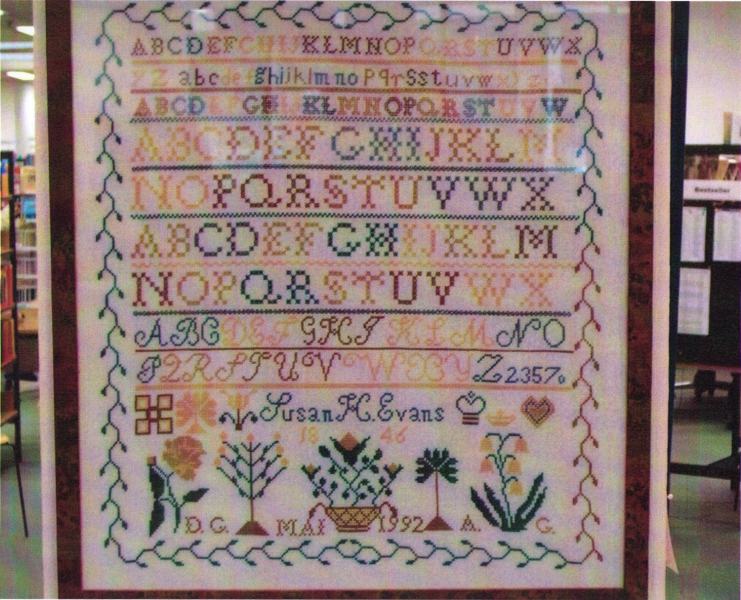 ABCDEFGHIJKLMNOPQRSTUVWX
YZ abcdefghijklmnopqrsstuvwxyz
ABCDEFGHIJKLMNOPQRSTUVW
ABCDEFGHIJKLM
NOPQRSTUVWX
ABCDEFGHIJKLM
NOPQRSTUVWX
ABCDEFGHIJKLMNO
PQRSTUVWXYZ 2357
Susan H. Evans
1846
D. G. MAI 1992 A. G.
Bestseller